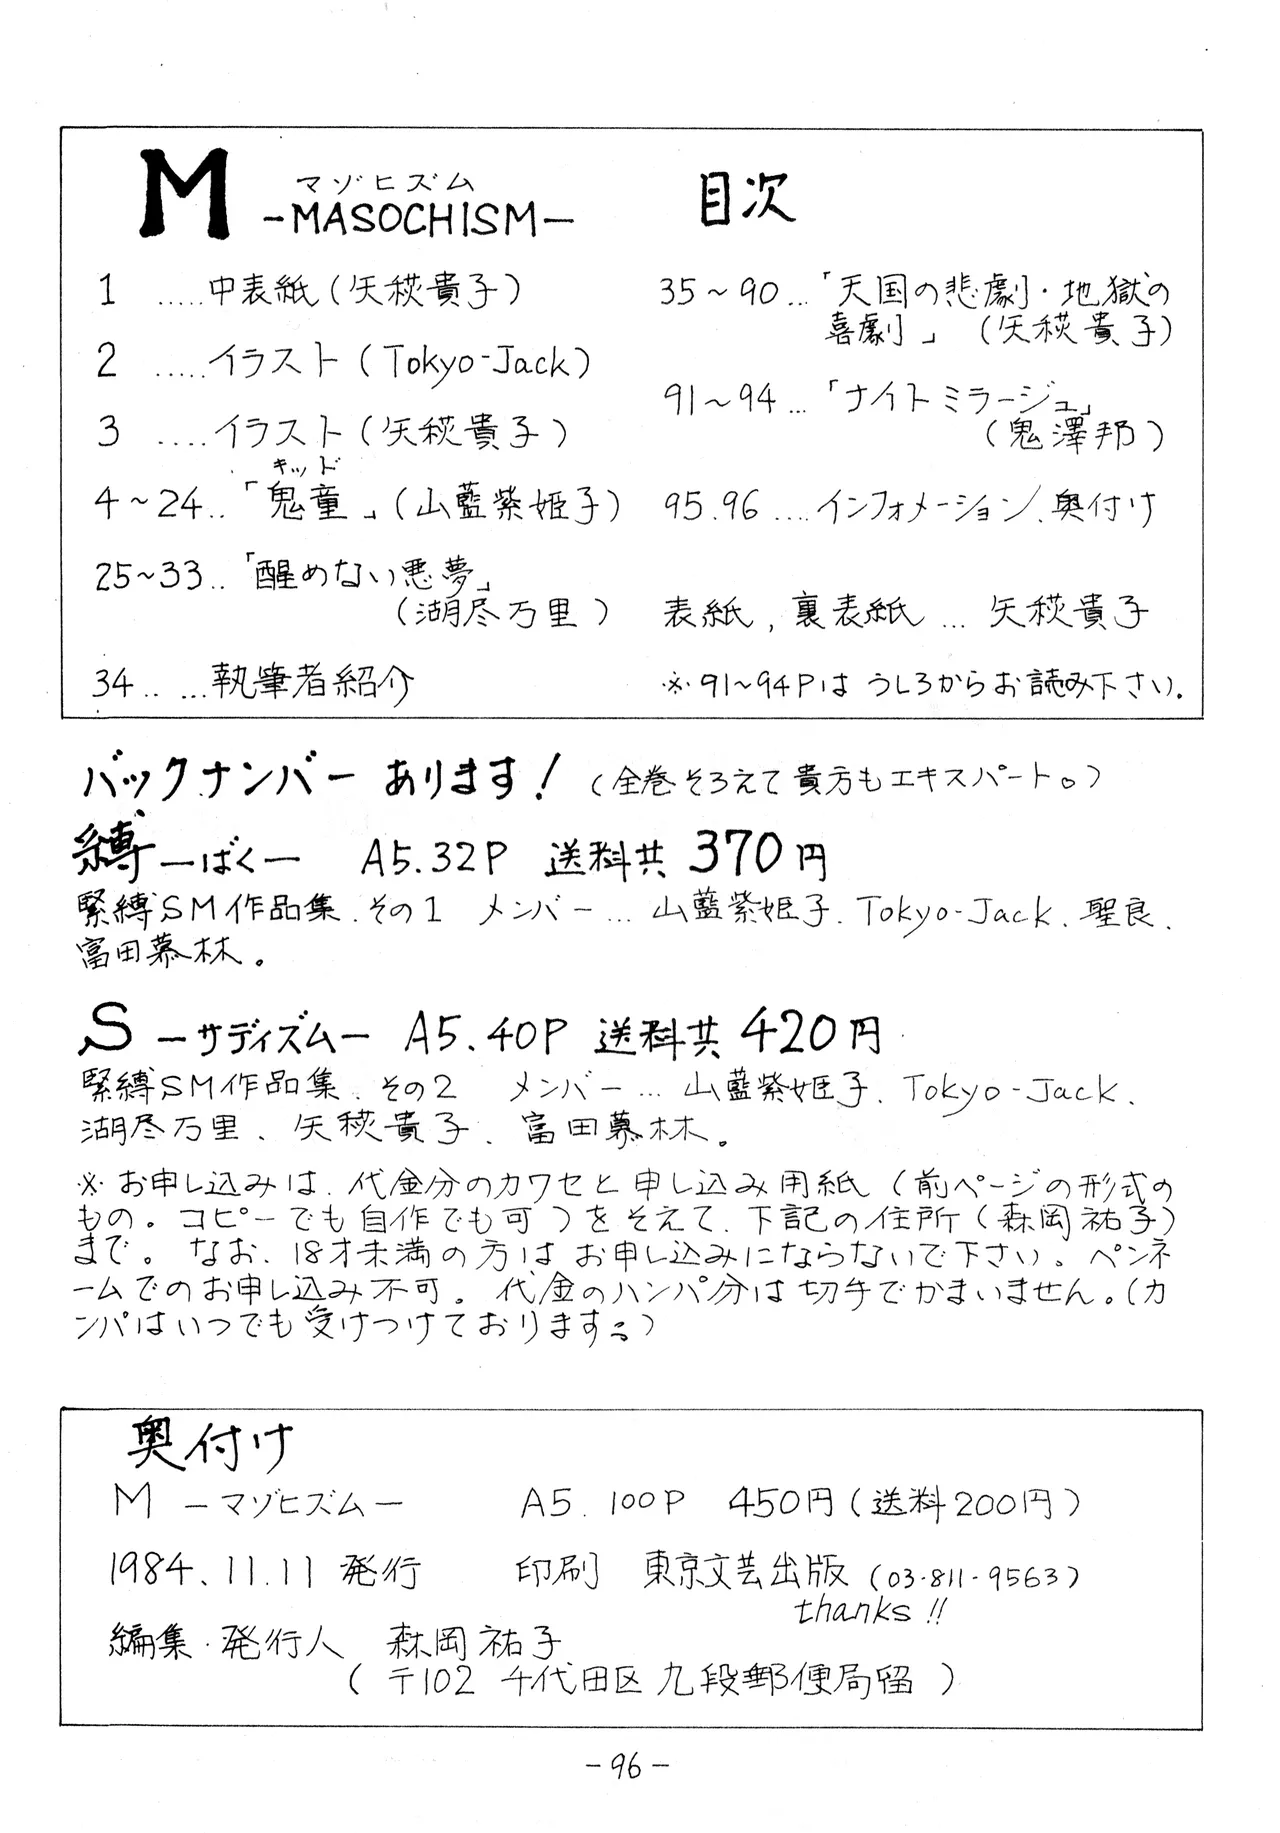 M
マゾヒズム
-MASOCHISM-
目次
1 .....中表紙(矢萩貴子)
2 .....イラスト(Tokyo-Jack)
3 ....イラスト(矢萩貴子)
キッド
4~24..「鬼童」(山藍紫姫子)
25~33..「醒めない悪夢」
(湖尽万里)
34.. ...執筆者紹介
35~90...「天国の悲劇・地獄の
喜劇」(矢萩貴子)
91~94...「ナイトミラージュ」
(鬼澤邦)
95.96 ....インフォメーション、奥付け
表紙,裏表紙... 矢萩貴子
※91~94Pは うしろからお読み下さい.
バックナンバー あります!(全巻そろえて貴方もエキスパート。)
縛 ーばくー A5.32P 送料共 370円
緊縛SM作品集.その1 メンバー... 山藍紫姫子.Tokyo-Jack.聖良.
富田慕林。
S ーサディズムー A5.40P 送料共 420円
緊縛SM作品集.その2 メンバー... 山藍紫姫子.Tokyo-Jack.
湖尽万里、矢萩貴子、富田慕林。
※お申し込みは、代金分のカワセと申し込み用紙(前ページの形式の
もの。コピーでも自作でも可)をそえて、下記の住所(森岡祐子)
まで。なお、18才未満の方はお申し込みにならないで下さい。ペンネ
ームでのお申し込み不可。代金のハンパ分は切手でかまいません。(カ
ンパはいつでも受けつけております。)
奥付け
M ーマゾヒズムー A5.100P 450円(送料200円)
1984.11.11発行 印刷 東京文芸出版(03-811-9563)
thanks!!
編集・発行人 森岡祐子
(〒102 千代田区九段郵便局留)
-96-